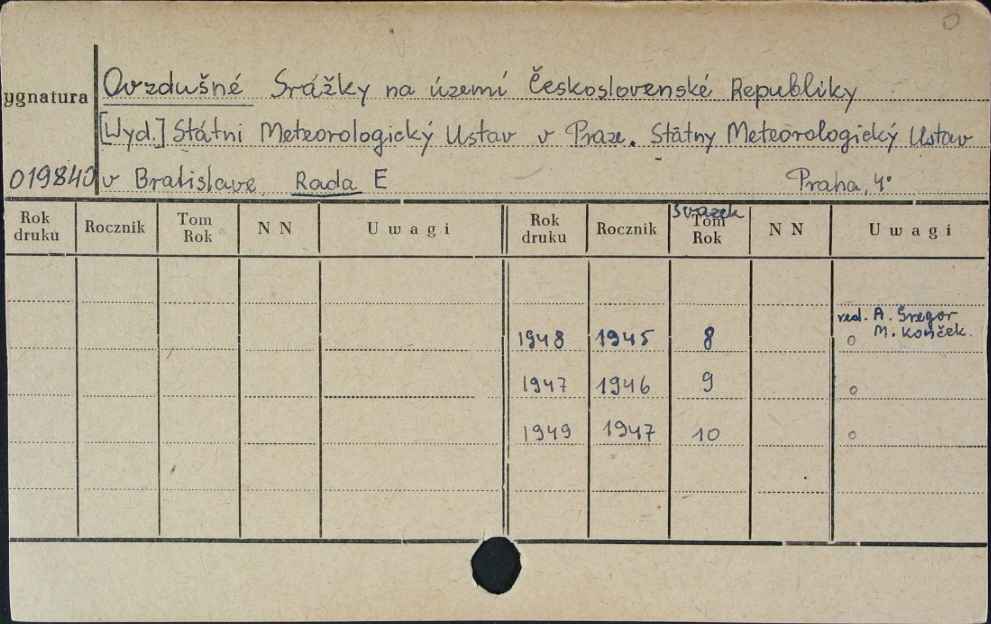 ygnatura Ovzdušné Srážky na území Československé Republiky
[Wyd.] Státni Meteorologický Ustav v Praze. Státny Meteorologický Ustav
019840 v Bratislave Rada E Praha, 4°
Rok druku Rocznik Tom Rok N N Uwagi Rok druku Rocznik svazek Tom Rok N N Uwagi
red. A. Gregor
M. Konček.
1948 1945 8 o
1947 1946 9 o
1949 1947 10 o